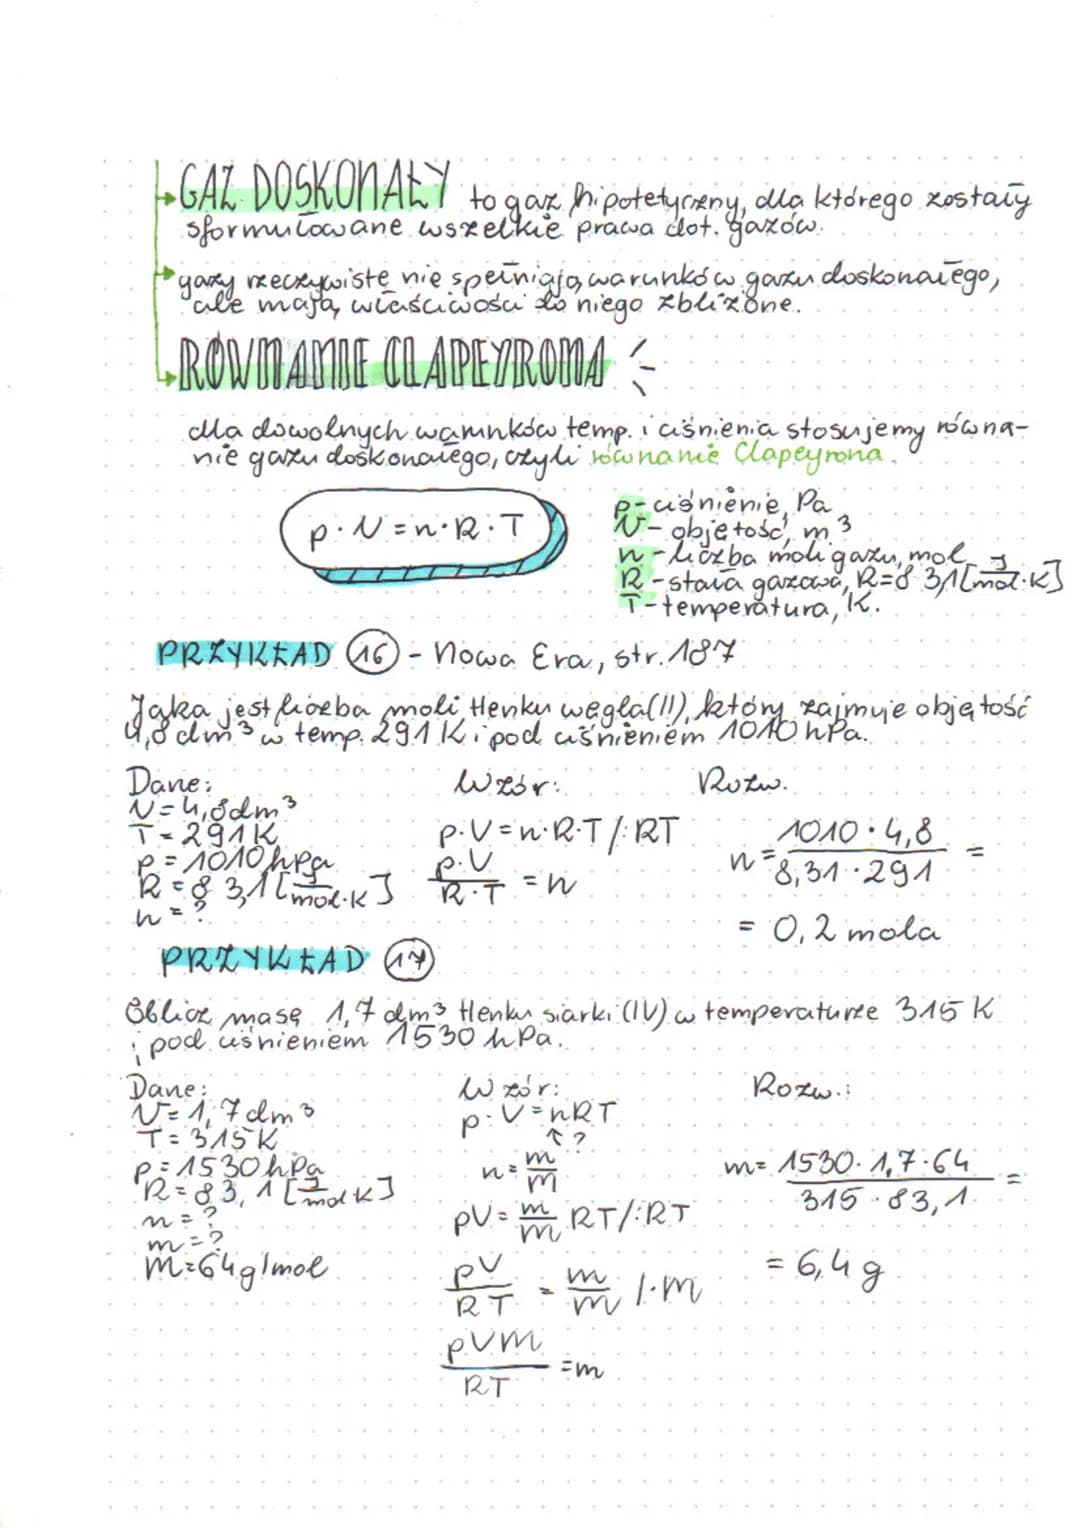 GAZ DOSKONAŁY to gaz hipotetyczny, dla którego zostały
sformułowane wszelkie prawa dot. gazów.
gazy rzeczywiste nie spełniają warunków gazu doskonałego,
ale mają właściwości do niego zbliżone.
RÓWNANIE CLAPEYRONA
dla dowolnych warunków temp. i ciśnienia stosujemy równa-
nie gazu doskonałego, czyli równanie Clapeyrona.
p·V=n·R·T
p-ciśnienie, Pa
V- objętość, m³
n-liczba moli gazu, mol
R-stała gazowa, R=8 3,1[J/mol·K]
T-temperatura, K.
PRZYKŁAD 16 - Nowa Era, str. 187
Jaka jest liczba moli tlenku węgla(II), który zajmuje objętość
4,8 dm³ w temp. 291 K i pod ciśnieniem 1010 hPa.
Dane: Wzór: Rozw.
V=4,8dm³
T=291K
p=1010hPa
R=8 3,1[J/mol·K]
n=?
p·V=n·R·T/:RT
p·V/R·T = n
n= 1010·4,8/8,31·291 =
= 0,2 mola
PRZYKŁAD 17
Oblicz masę 1,7 dm³ tlenku siarki(IV) w temperaturze 315 K
i pod ciśnieniem 1530 hPa.
Dane: Wzór: Rozw.:
V=1,7dm³
T=315K
p=1530hPa
R=83,1[J/mol·K]
n=?
m=?
M=64g/mol
p·V=nRT
↑?
n=m/M
pV=m/M RT/:RT
pV/RT = m/M /·M
pVM/RT =m
m= 1530·1,7·64/315·83,1 =
= 6,4 g